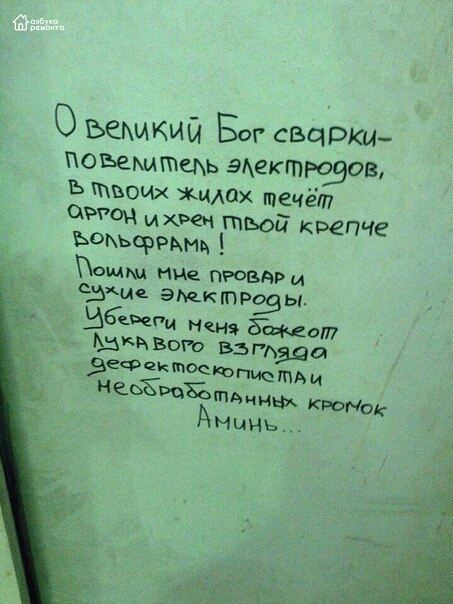 азбука
ремонта
О великий Бог сварки-
повелитель электродов,
в твоих жилах течёт
аргон и хрен твой крепче
вольфрама!
Пошли мне провар и
сухие электроды.
Убереги меня боже от
лукавого взгляда
дефектоскописта и
необработанных кромок
Аминь...